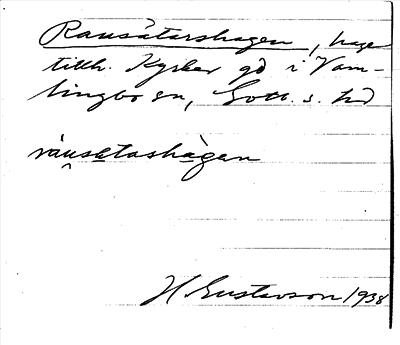 Ransätarshagen, hage
tillh. Kyrkeb gd i Vam-
lingbo sn, Gotl. s. hd
ránsetashàgen
H. Gustavson 1938